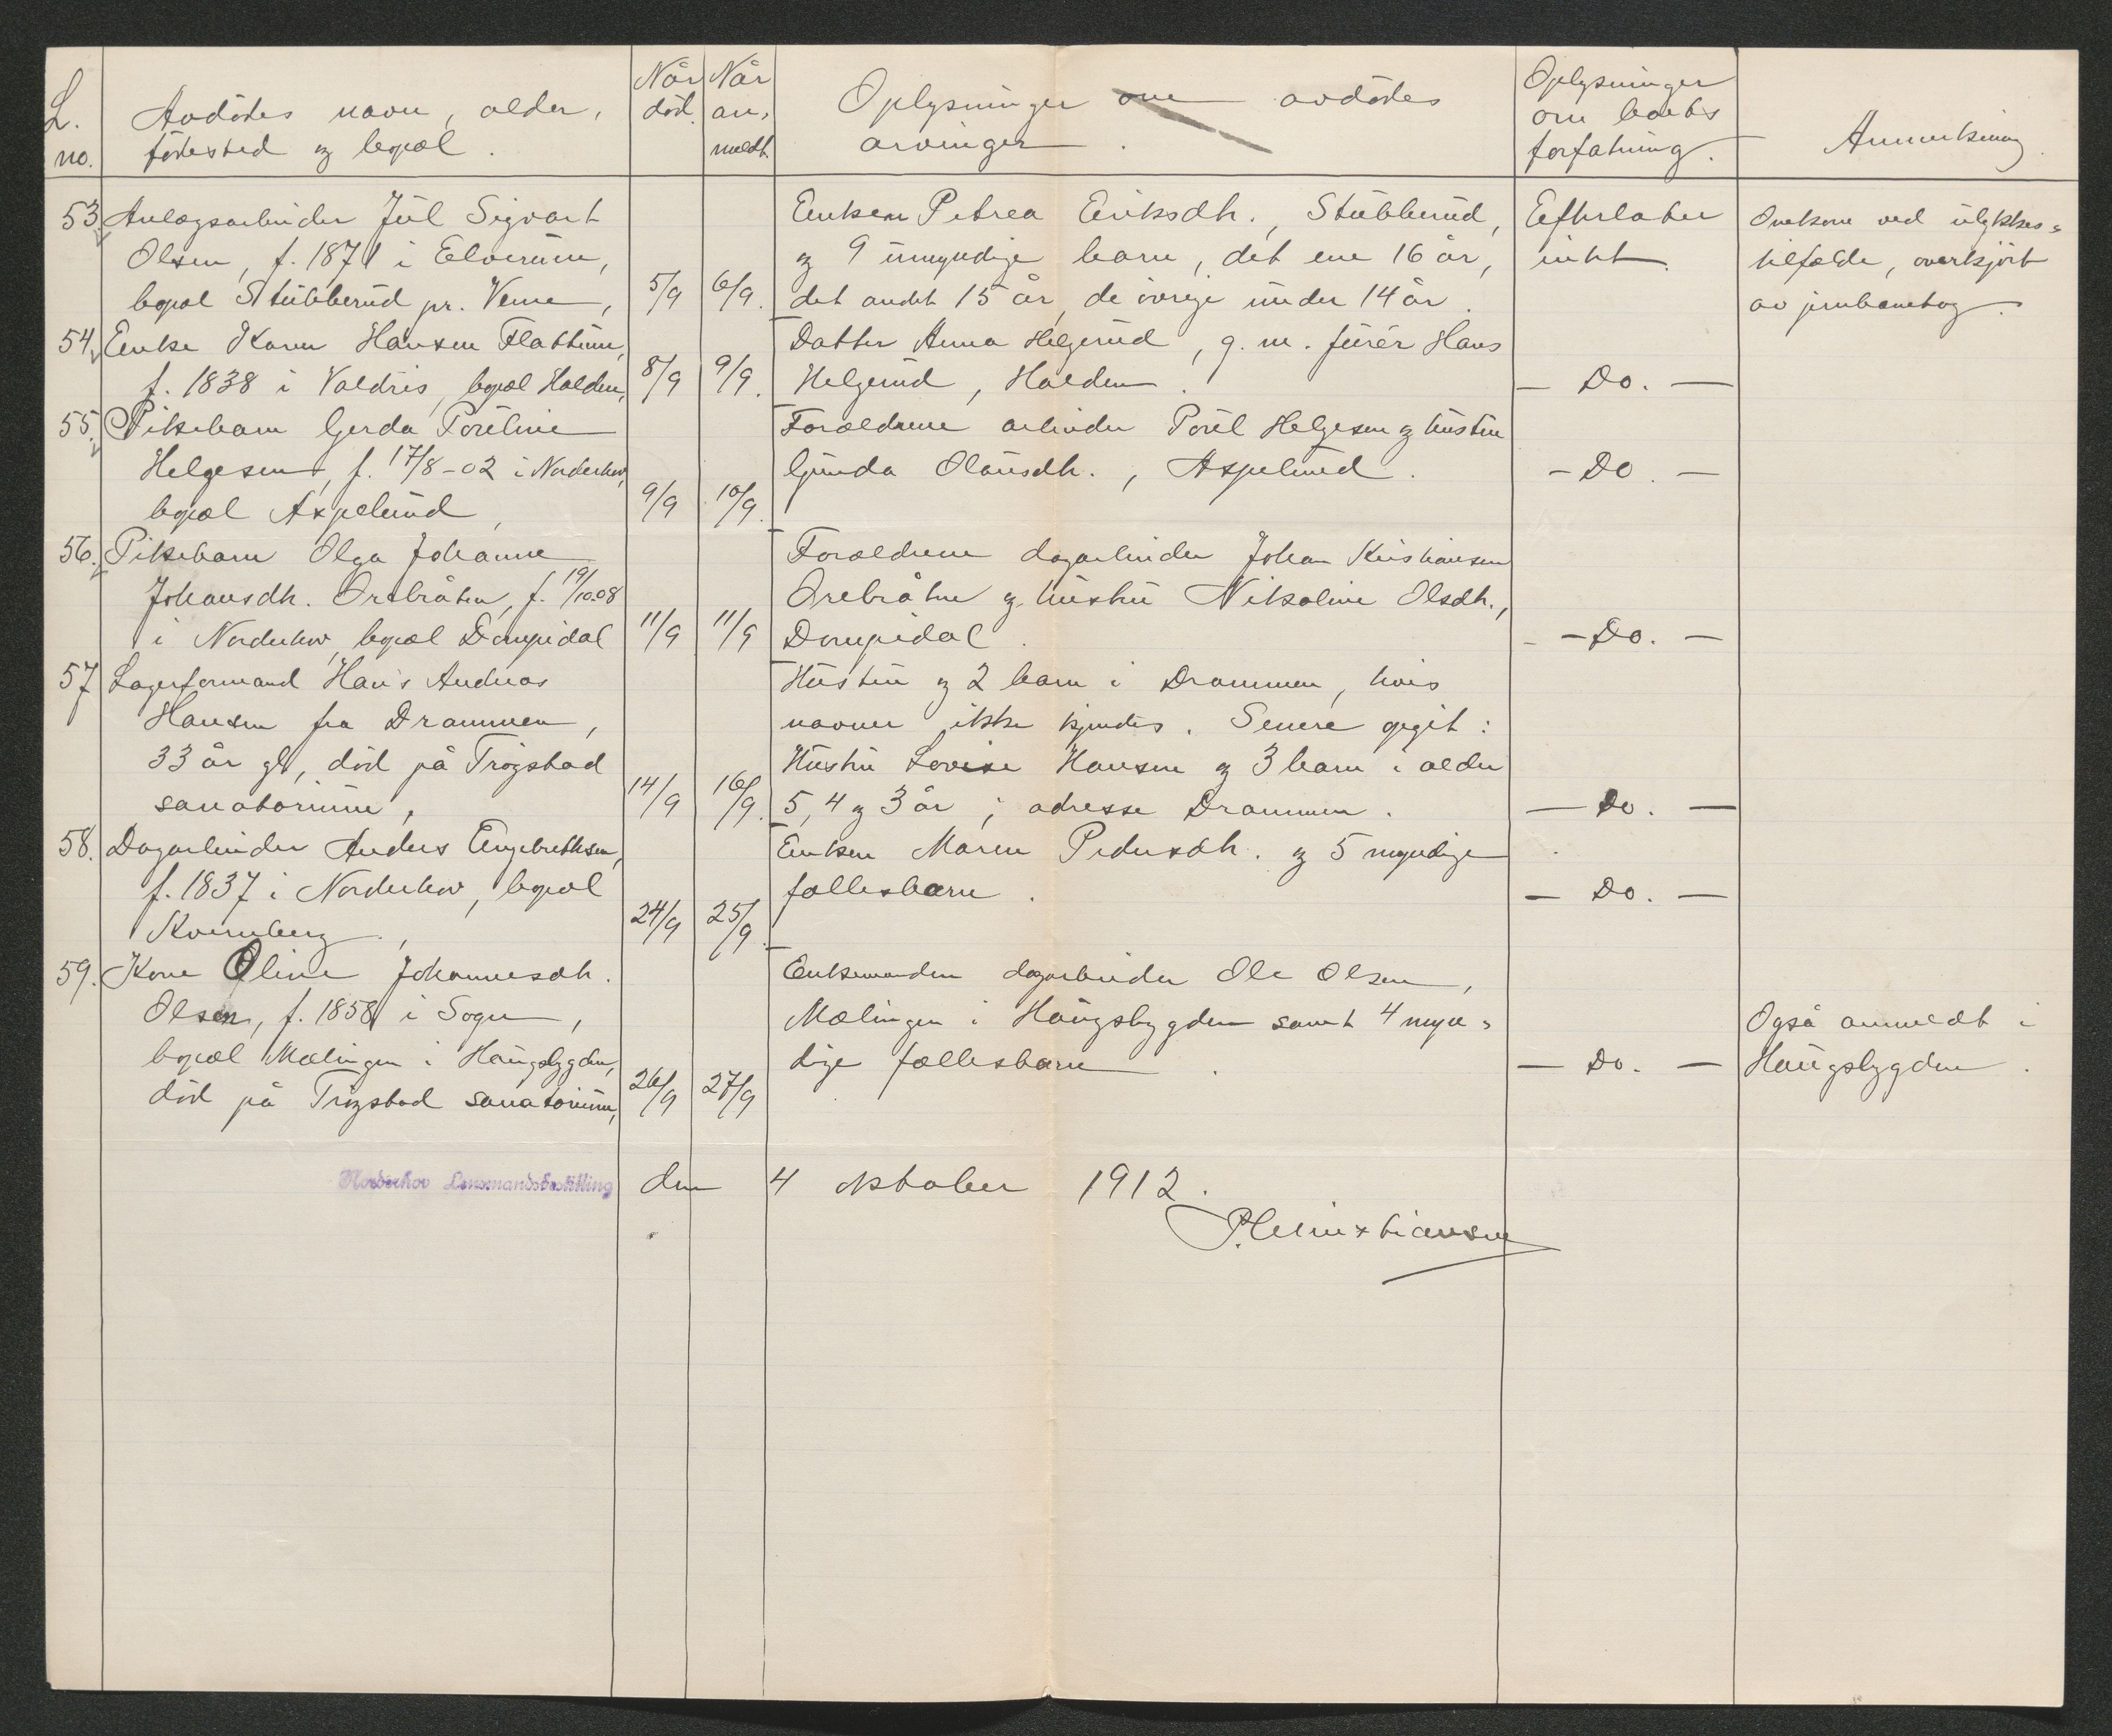 L.
no.
Avdödes navn, alder,
födested og bopæl.
Når
död.
Når
an-
meldt.
Oplysninger om avdödes
arvinger.
Oplysninger
om boets
forfatning.
Anmerkning.
53. Anlægsarbeider Jul Sigvart
Olsen, f. 1871 i Elverum,
bopæl Stubberud pr. Veme,
5/9
6/9.
Enken Petrea Eriksdtr., Stubberud,
og 9 umyndige barn, det ene 16 år,
det andet 15 år, de övrige under 14 år.
Efterlater
intet.
Omkom ved ulykkes-
tilfælde, overkjört
av jernbanetog.
54. Enke Karen Hansen Flattum,
f. 1838 i Valdris, bopæl Halden,
8/9
9/9.
Datter Anna Helgerud, g. m. furér Hans
Helgerud, Halden.
- Do. -
55. Pikebarn Gerda Pouline
Helgesen, f. 17/8-02 i Norderhov,
bopæl Aspelund,
9/9
10/9.
Forældrene arbeider Poul Helgesen og hustru
Gunda Olausdtr., Aspelund.
- Do. -
56. Pikebarn Olga Johanne
Johansdtr. Orebråten, f. 19/10.08
i Norderhov, bopæl Dompidal
11/9
11/9
Forældrene dagarbeider Johan Kristiansen
Orebråten og hustru Nikoline Olsdtr.,
Dompidal.
- Do. -
57. Lagerformand Hans Andreas
Hansen fra Drammen,
33 år gl, död på Trögstad
sanatorium,
14/9
16/9.
Hustru og 2 barn i Drammen, hvis
navner ikke kjendes. Senere opgit:
Hustru Lovise Hansen og 3 barn i alder
5, 4 og 3 år; adresse Drammen.
- Do. -
58. Dagarbeider Anders Engebrethsen,
f. 1837 i Norderhov, bopæl
Kvernberg,
24/9
25/9.
Enken Maren Pedersdtr. og 5 myndige
fællesbarn.
- Do. -
59. Kone Oline Johannesdtr.
Olsen, f. 1858 i Sogn,
bopæl Mælingen i Haugsbygden,
död på Trögstad sanatorium,
26/9
27/9
Enkemanden dagarbeider Ole Olsen,
Mælingen i Haugsbygden samt 4 myn-
dige fællesbarn.
- Do. -
Også anmeldt i
Haugsbygden.
Norderhov Lensmandsbestilling den 4 oktober 1912.